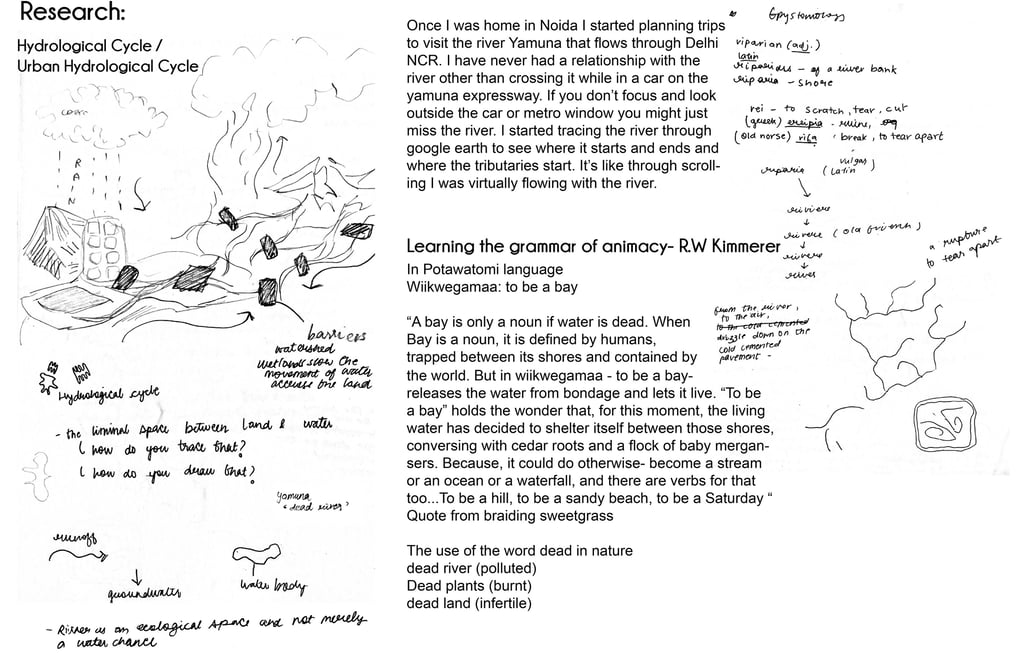 Research:
Hydrological Cycle /
Urban Hydrological Cycle
RAIN
barriers
watershed
wetlands slow the
movement of water
across the land
Hydrological cycle
- the liminal space between land & water
how do you trace that?
how do you draw that?
Yamuna
'dead river'
runoff
groundwater
water body
- River as an ecological space and not merely
a water
Once I was home in Noida I started planning trips
to visit the river Yamuna that flows through Delhi
NCR. I have never had a relationship with the
river other than crossing it while in a car on the
yamuna expressway. If you don't focus and look
outside the car or metro window you might just
miss the river. I started tracing the river through
google earth to see where it starts and ends and
where the tributaries start. It's like through scroll-
ing I was virtually flowing with the river.
Learning the grammar of animacy- R.W Kimmerer
In Potawatomi language
Wiikwegamaa: to be a bay
“A bay is only a noun if water is dead. When
Bay is a noun, it is defined by humans,
trapped between its shores and contained by
the world. But in wiikwegamaa - to be a bay-
releases the water from bondage and lets it live. “To be
a bay” holds the wonder that, for this moment, the living
water has decided to shelter itself between those shores,
conversing with cedar roots and a flock of baby mergan-
sers. Because, it could do otherwise- become a stream
or an ocean or a waterfall, and there are verbs for that
too...To be a hill, to be a sandy beach, to be a Saturday “
Quote from braiding sweetgrass
The use of the word dead in nature
dead river (polluted)
Dead plants (burnt)
dead land (infertile)
Epystomology
riparian (adj.)
latin
riparius - of a river bank
riparia - shore
rei - to scratch, tear, cut
(greek) ereipia - ruine,
(old norse) rifa , break, to tear apart
riparia (vulgar Latin)
riviere
rivere (old french)
rivere
river
a rupture
to tear apart
from the river,
to the air,
to the cold cemented
drizzle down on the
cold cemented
pavement -